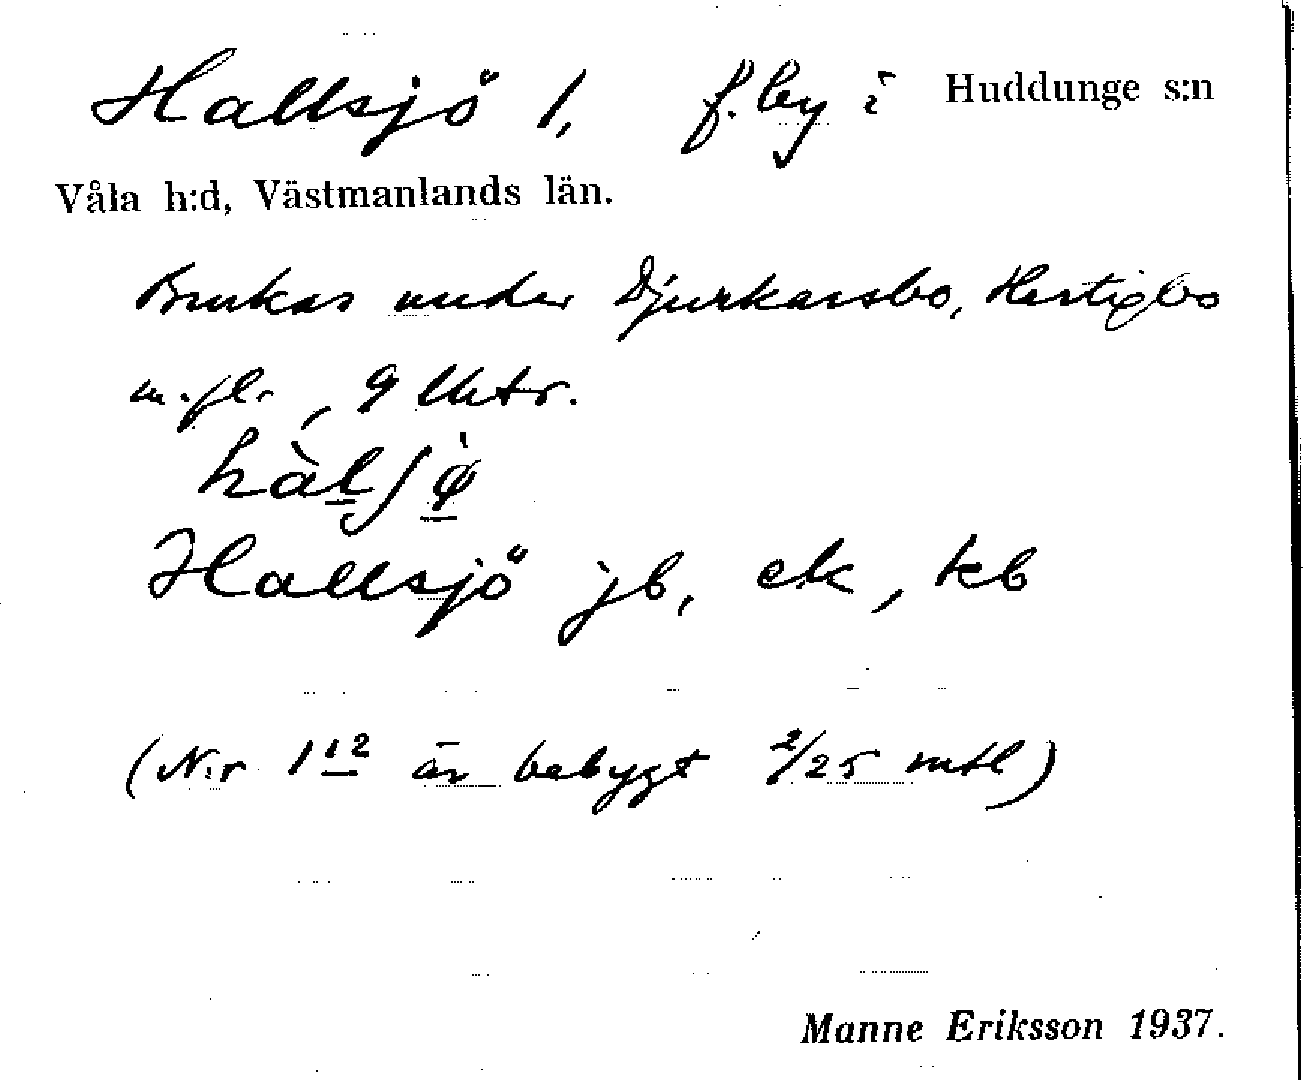 Hallsjö 1, f. by i Huddunge s:n
Våla h:d, Västmanlands län.
Brukas under Djurkarsbo, Hertigbo
m.fl., 9 Uktr.
hàlʃø̀
Hallsjö jb, ek, kb
(N:r 1¹² är bebygt 2/25 mtl)
Manne Eriksson 1937.